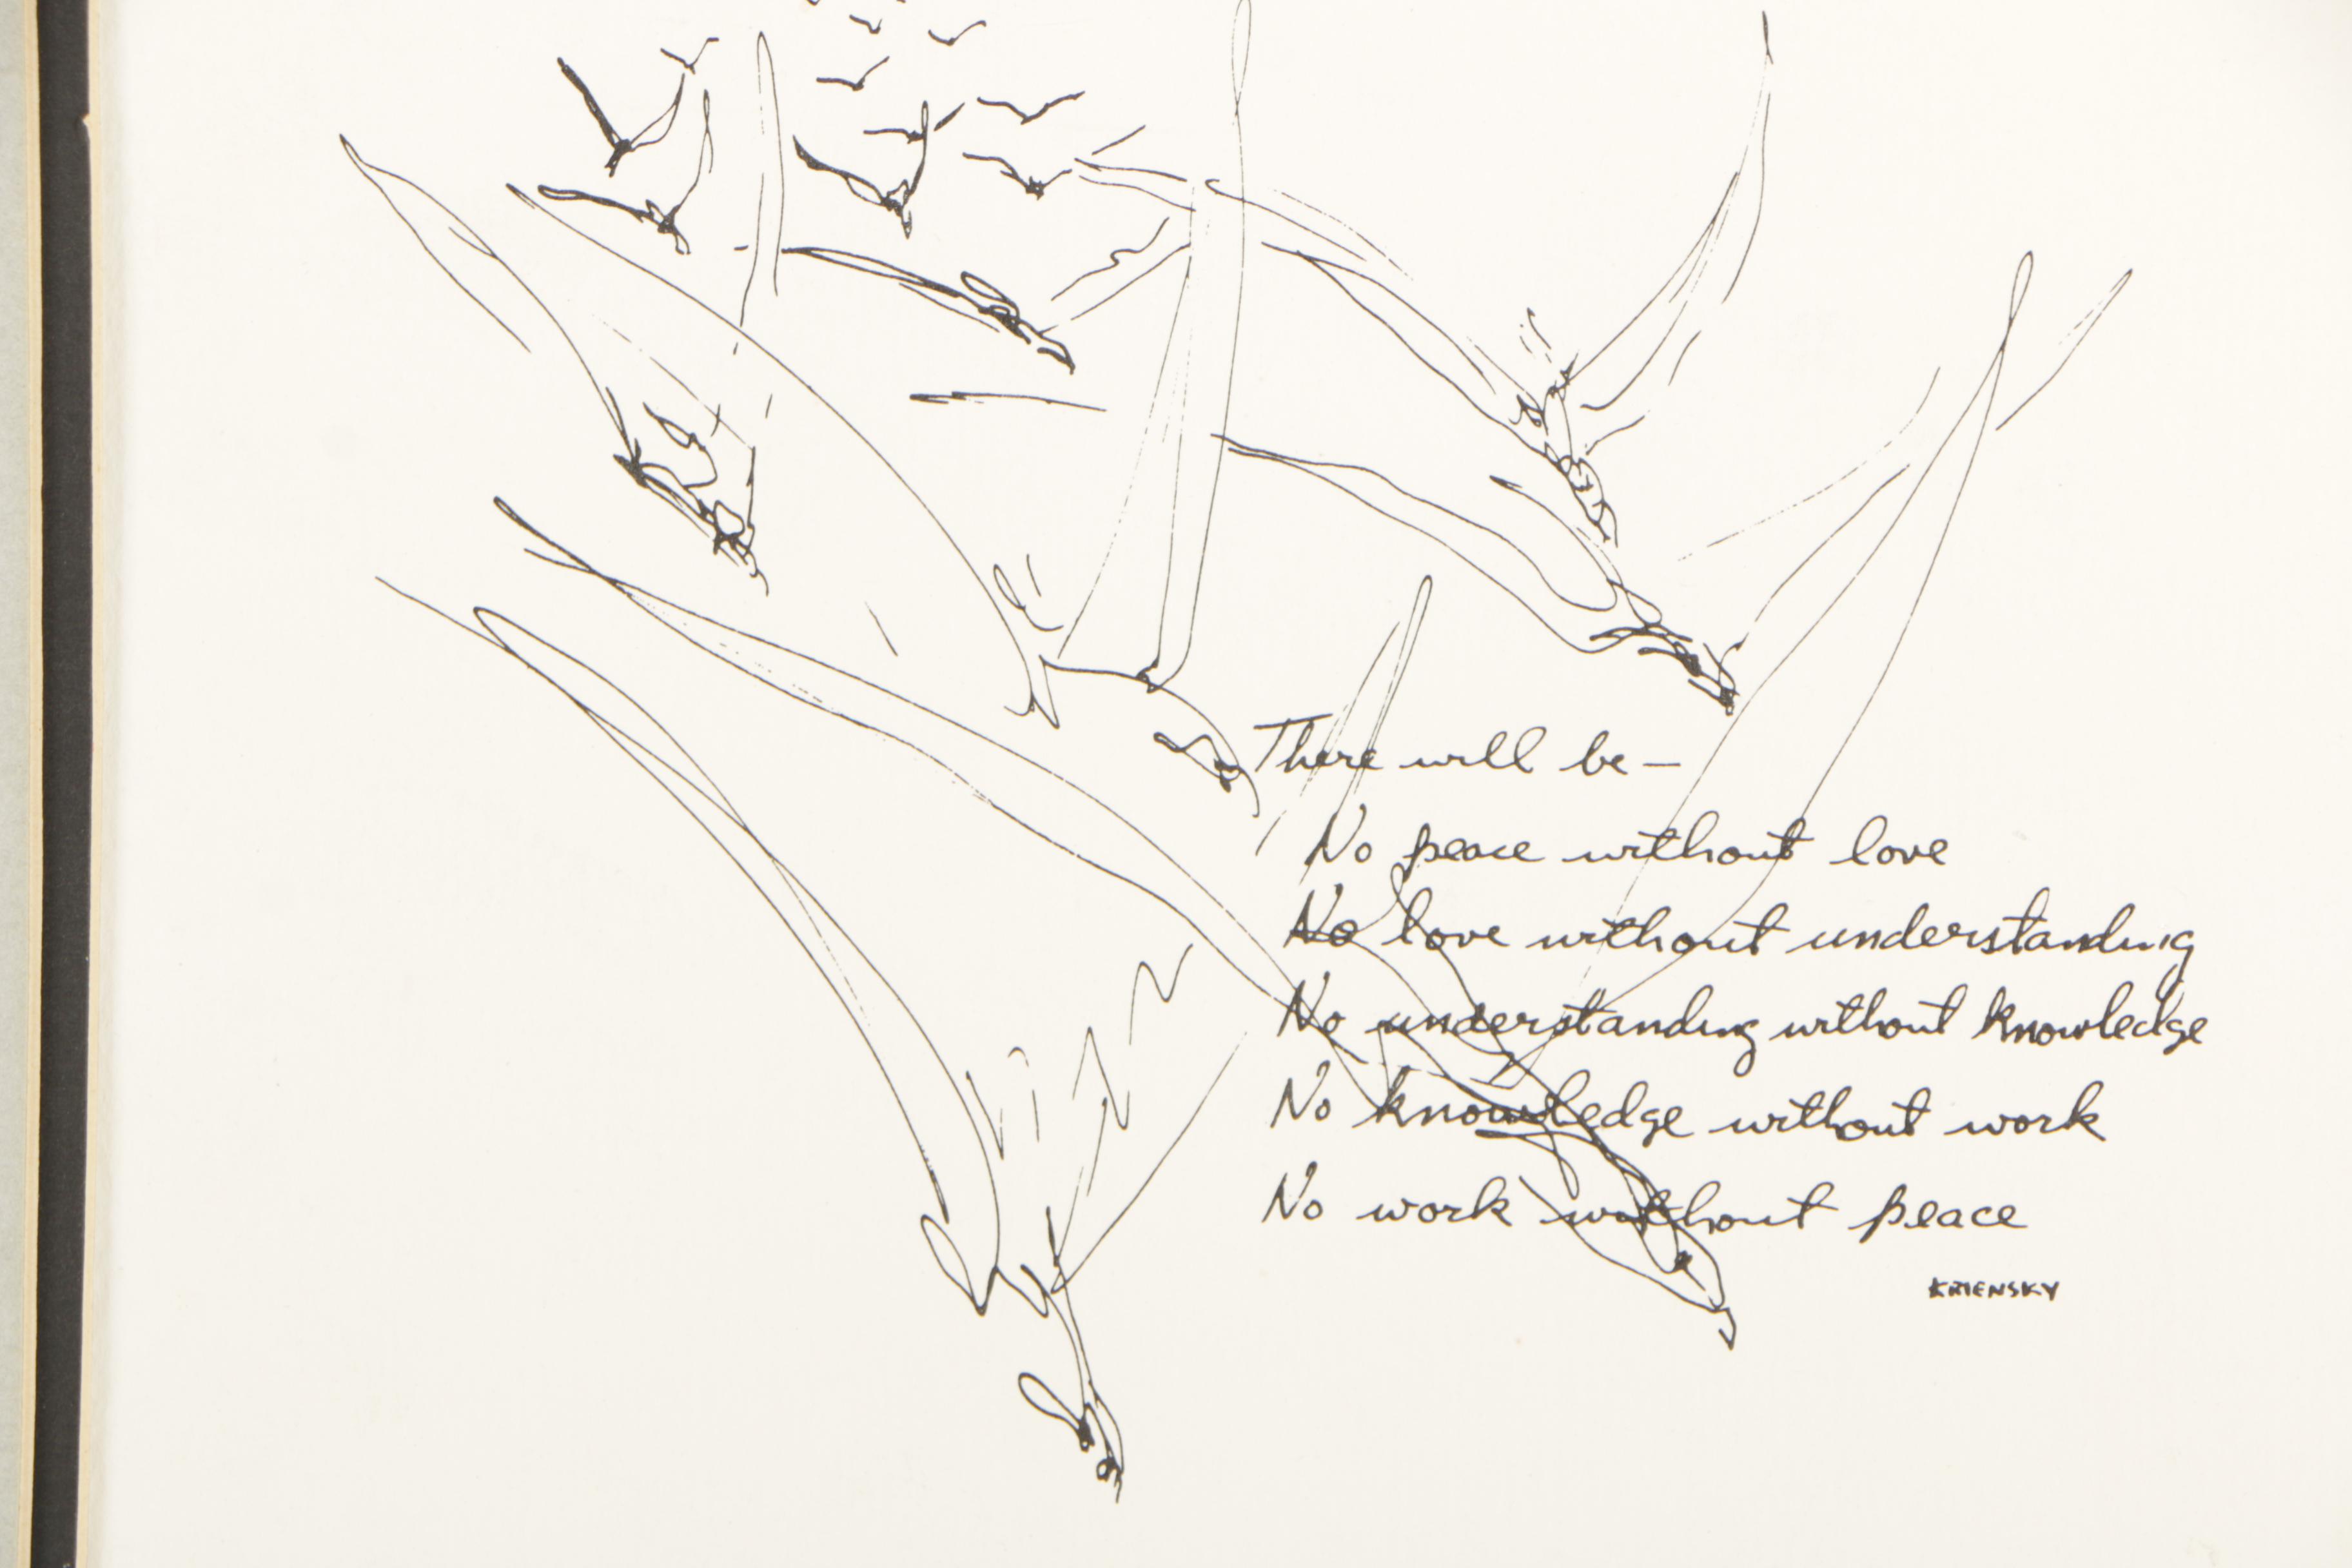 There will be—
No peace without love
No love without understanding
No understanding without knowledge
No knowledge without work
No work without peace
KRIENSKY